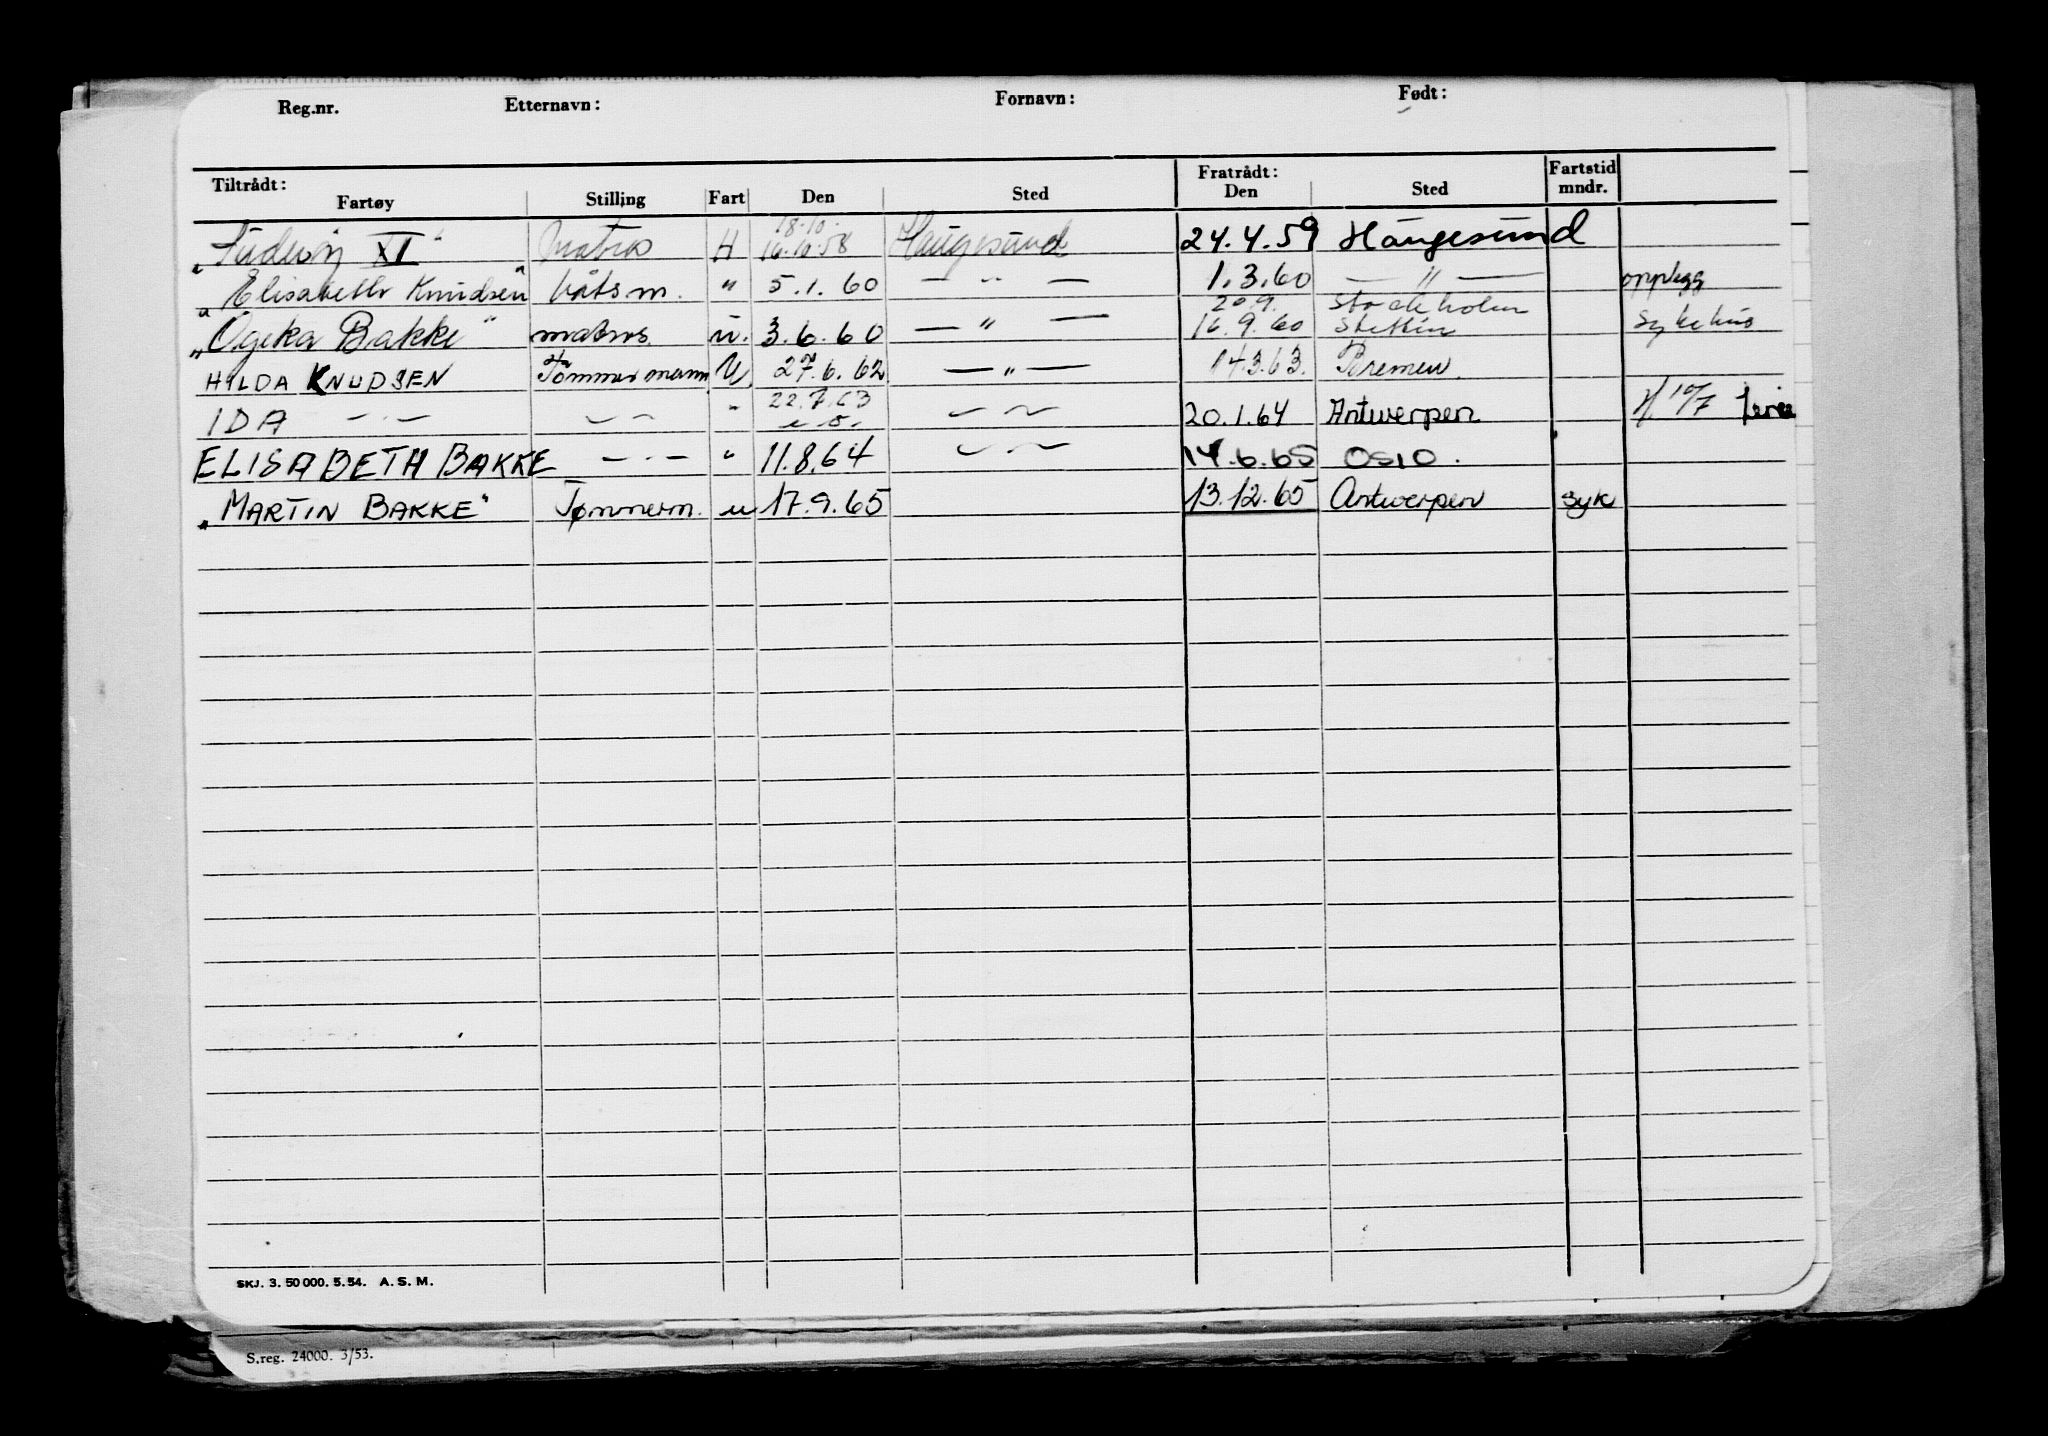 Reg.nr. Etternavn: Fornavn: Født:
Tiltrådt: Fratrådt: Fartstid
Fartøy Stilling Fart Den Sted Den Sted mndr.
18.10.
XI" Matros H 16.10.58 Haugesund 24.4.59 Haugesund
"Elisabeth Knudsen" båtsm. " 5.1.60 — " — 1.3.60 — " — opplegg
20.9. Stockholm
"Ogeka Bakke" matros. u. 3.6.60 — " — 16.9.60 Stettin Sykehus
HILDA KNUDSEN Tømmermann U 27.6.62 — " — 14.3.63. Bremen.
22.7.63
IDA — " — — " — " — " — 20.1.64 Antwerpen 10/7 ferie
ELISABETH BAKKE — " — " 11.8.64 — " — 14.6.65 OSLO.
"MARTIN BAKKE" Tømmerm. u 17.9.65 13.12.65 Antwerpen syk
SKJ. 3. 50 000. 5.54. A. S. M.
S.reg. 24000. 3/53.